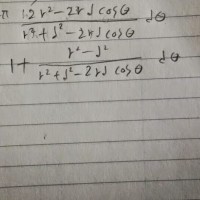 π 1.2r² - 2rs cosθ / r² + s² - 2rs cosθ dθ
1 + r² - s² / r² + s² - 2rs cosθ dθ